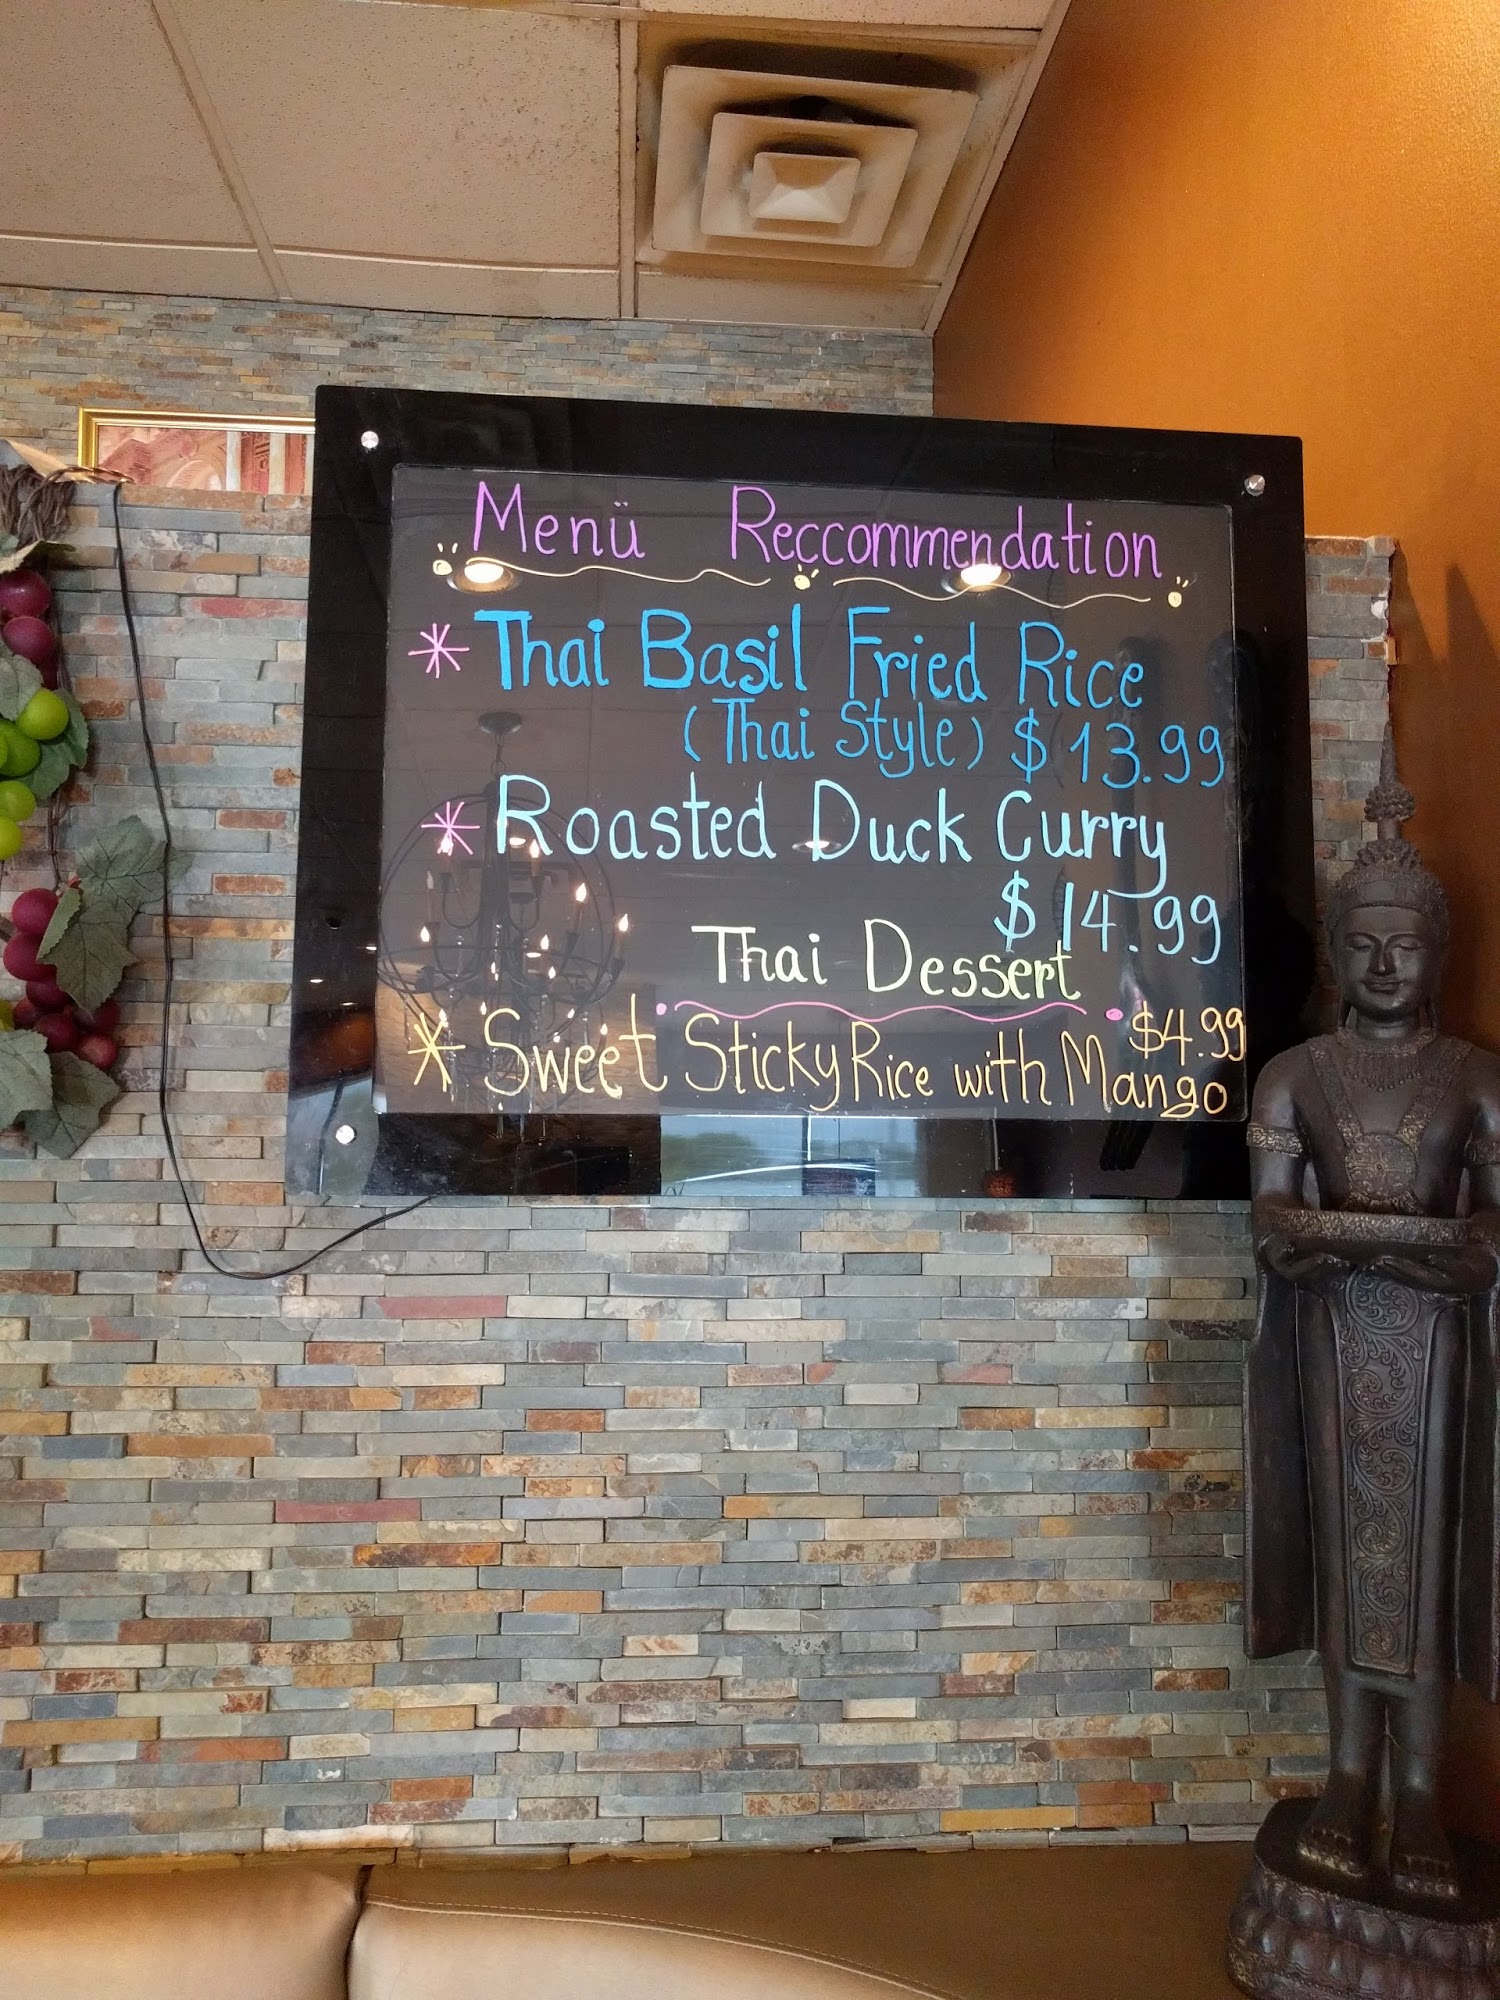 Menü Reccommendation
* Thai Basil Fried Rice
(Thai Style) $13.99
* Roasted Duck Curry
$14.99
Thai Dessert
* Sweet Sticky Rice with Mango $4.99